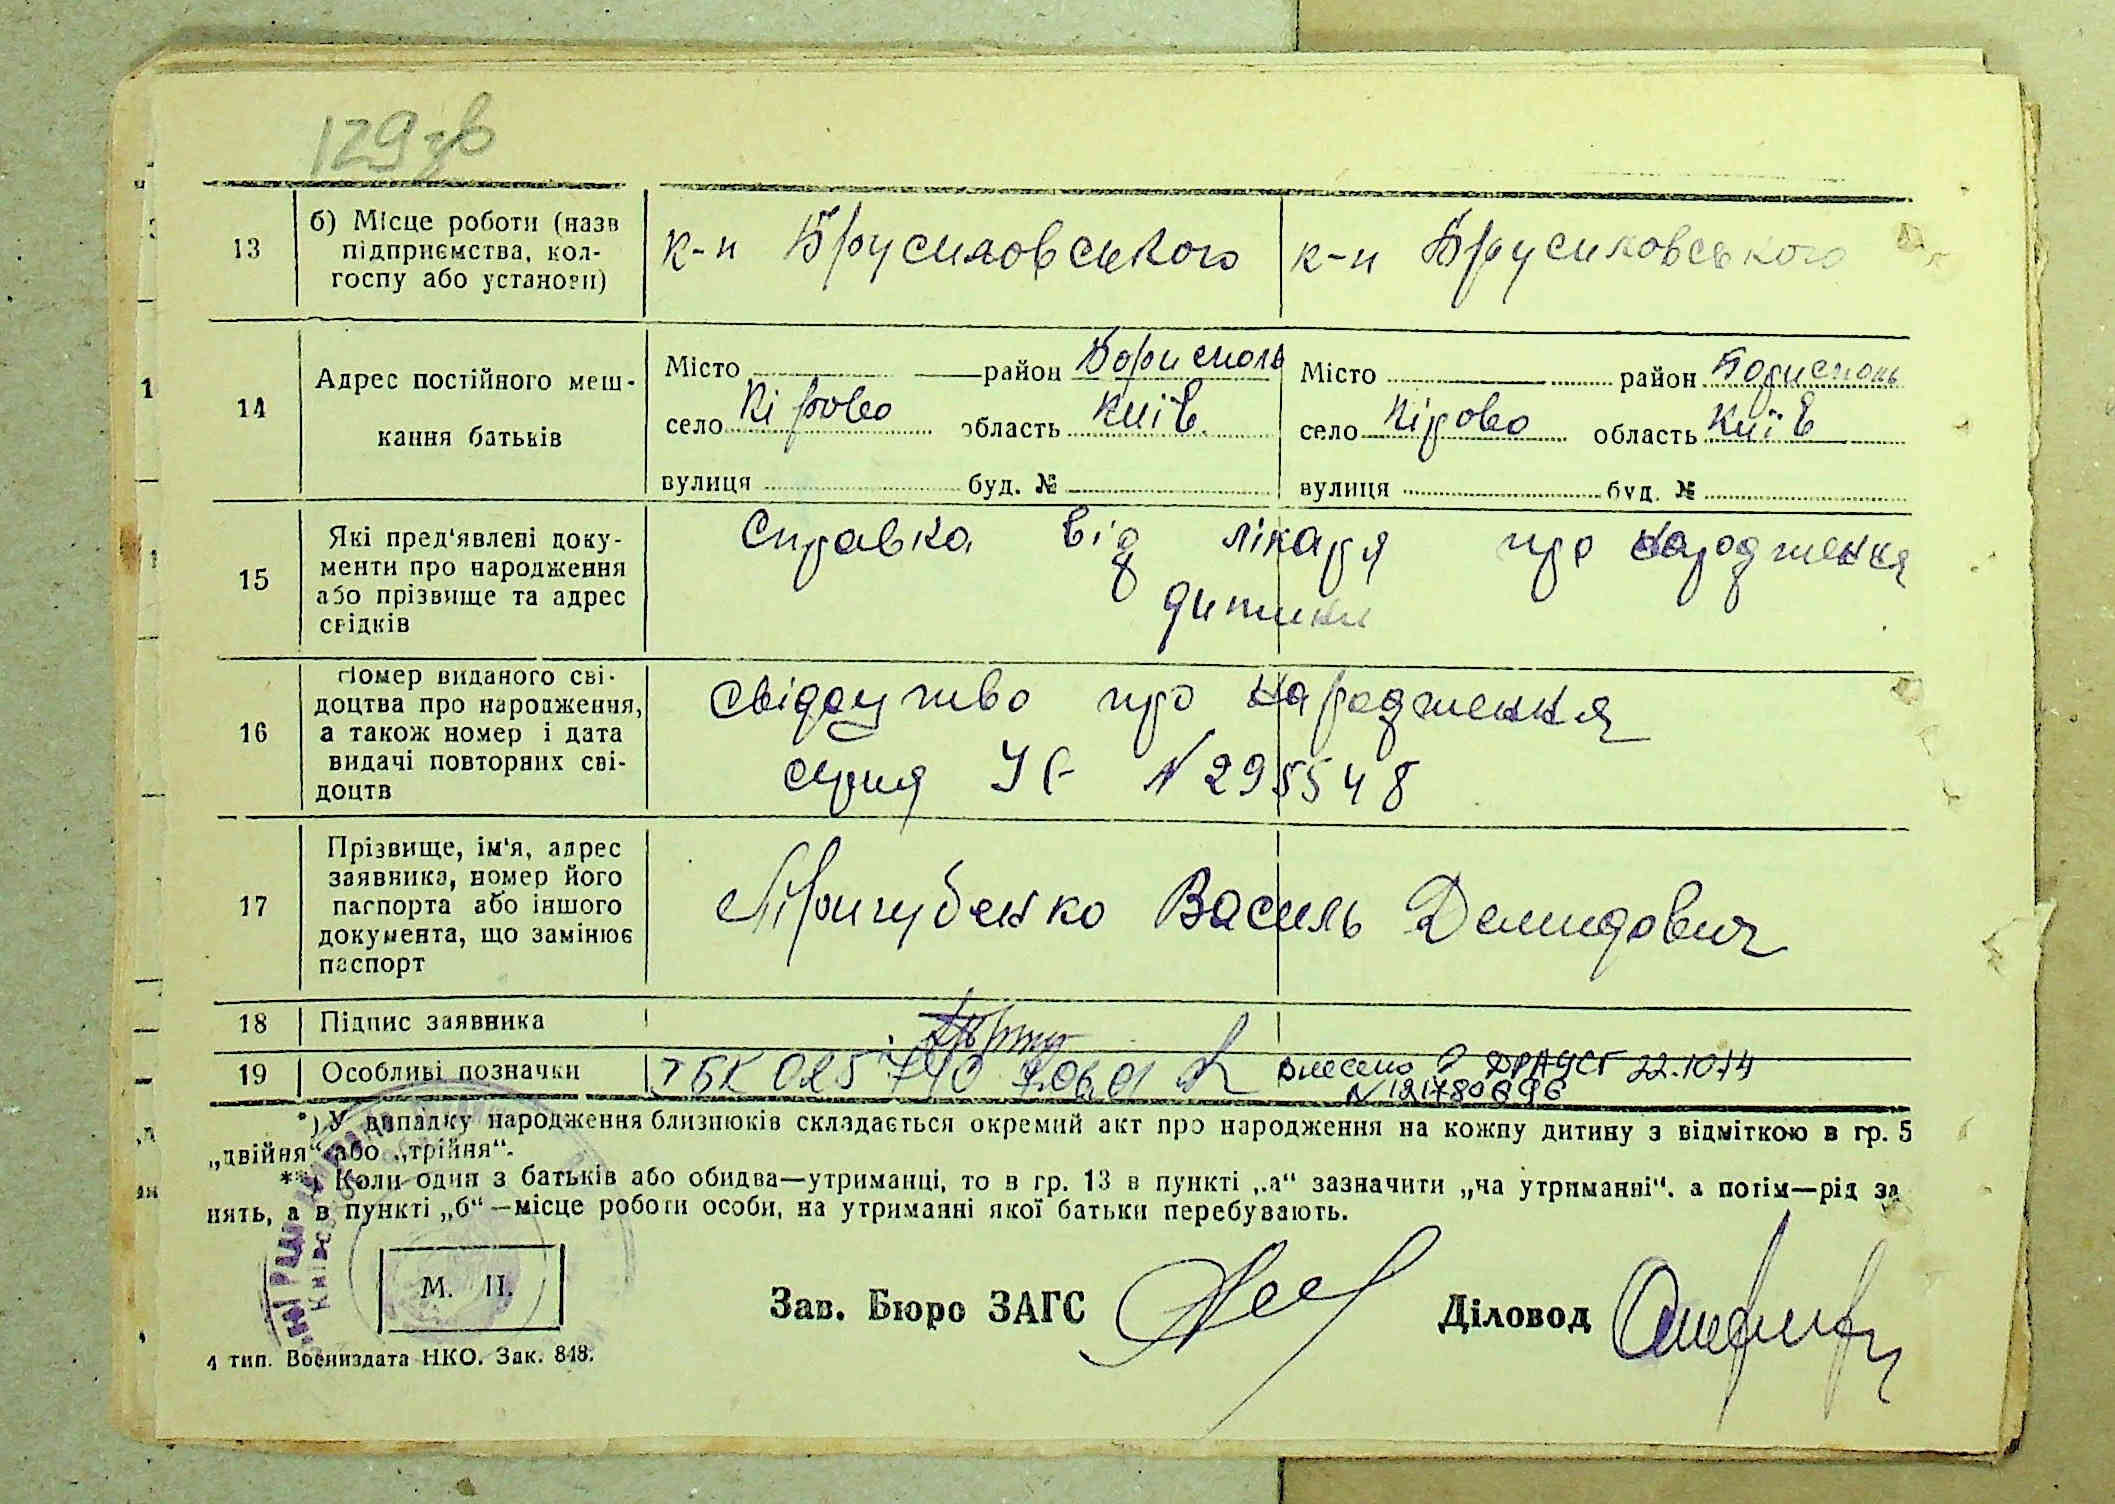 129зв
13
б) Місце роботи (назв
підприємства, кол-
госпу або установи)
к-п Брусиловського
к-п Брусиловського
14
Адрес постійного меш-
кання батьків
Місто район Бориспо́ль
село Кірово область Київ
вулиця буд. №
Місто район Бориспо́ль
село Кірово область Київ
вулиця буд. №
15
Які пред'явлені доку-
менти про народження
або прізвище та адрес
свідків
Справка від лікаря про народження
дитини
16
Номер виданого сві-
доцтва про народження,
а також номер і дата
видачі повторних сві-
доцтв
Свідоцтво про народження
серия УБ N 295548
17
Прізвище, ім'я, адрес
заявника, номер його
паспорта або іншого
документа, що замінює
паспорт
Василь Демидович
18
Підпис заявника
19
Особливі позначки
ТБК 025740 7.06.01
Внесено в ДРАЦСГ 22.10.14
N 121780696
*) У випадку народження близнюків складається окремий акт про народження на кожну дитину з відміткою в гр. 5
„двійня“ або „трійня“.
**) Коли один з батьків або обидва—утриманці, то в гр. 13 в пункті „а“ зазначити „на утриманні“. а потім—рід за
нять, а в пункті „б“—місце роботи особи, на утриманні якої батьки перебувають.
М. П.
Зав. Бюро ЗАГС
Діловод
4 тип. Воениздата НКО. Зак. 848.